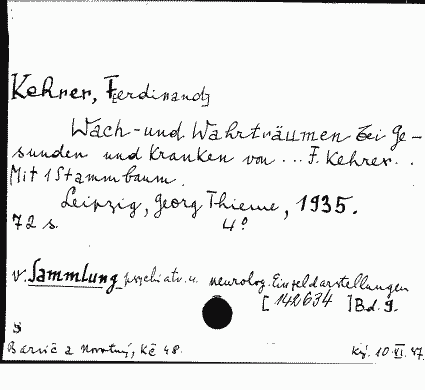 Kehrer, F[erdinand]
Wach- und Wahrträumen bei Ge-
sunden und Kranken von ... F. Kehrer ..
Mit 1 Stammbaum.
Leipzig, Georg Thieme, 1935.
72 s. 4°
v. Sammlung psychiatr. u. neurolog. Einzeldarstellungen
[142634] Bd. 9.
S
Barvič a Novotný, Kč 48.
Ký. 10.VI.47.